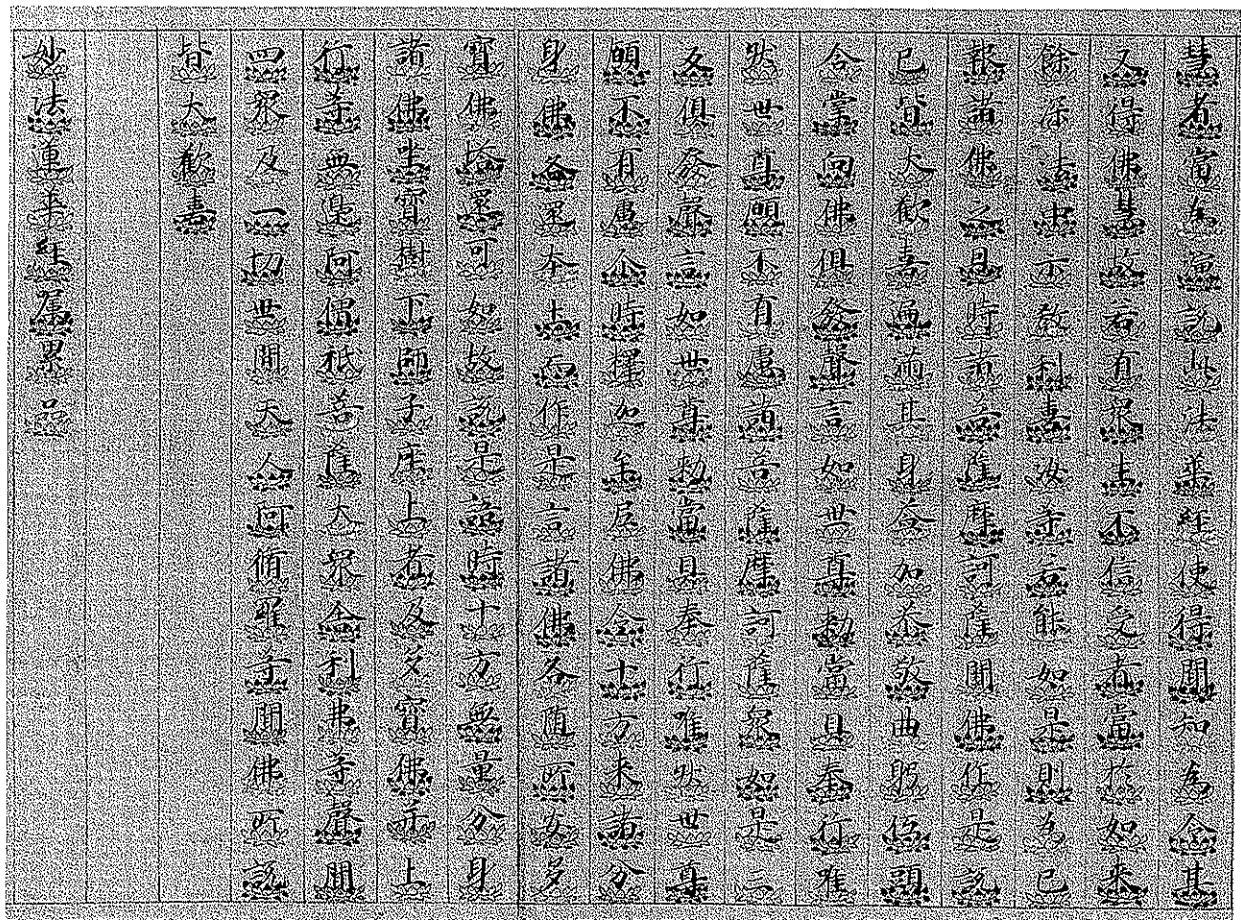 慧者當為演說此法華經使得聞知為令其
又得佛慧故若有眾生不信受者當於如來
餘深法中示教利喜汝等若能如是則為已
報諸佛之恩時諸菩薩摩訶薩聞佛作是說
已皆大歡喜遍滿其身益加恭敬曲躬低頭
合掌向佛俱發聲言如世尊勅當具奉行唯
然世尊願不有慮諸菩薩摩訶薩眾如是三
反俱發聲言如世尊勅當具奉行唯然世尊
願不有慮尒時釋迦牟尼佛令十方來諸分
身佛各還本土而作是言諸佛各隨所安多
寶佛塔還可如故說是語時十方無量分身
諸佛坐寶樹下師子座上者及多寶佛并上
行等無邊阿僧祇菩薩大眾舍利弗等聲聞
四眾及一切世間天人阿脩羅等聞佛所說
皆大歡喜
妙法蓮華經属累品